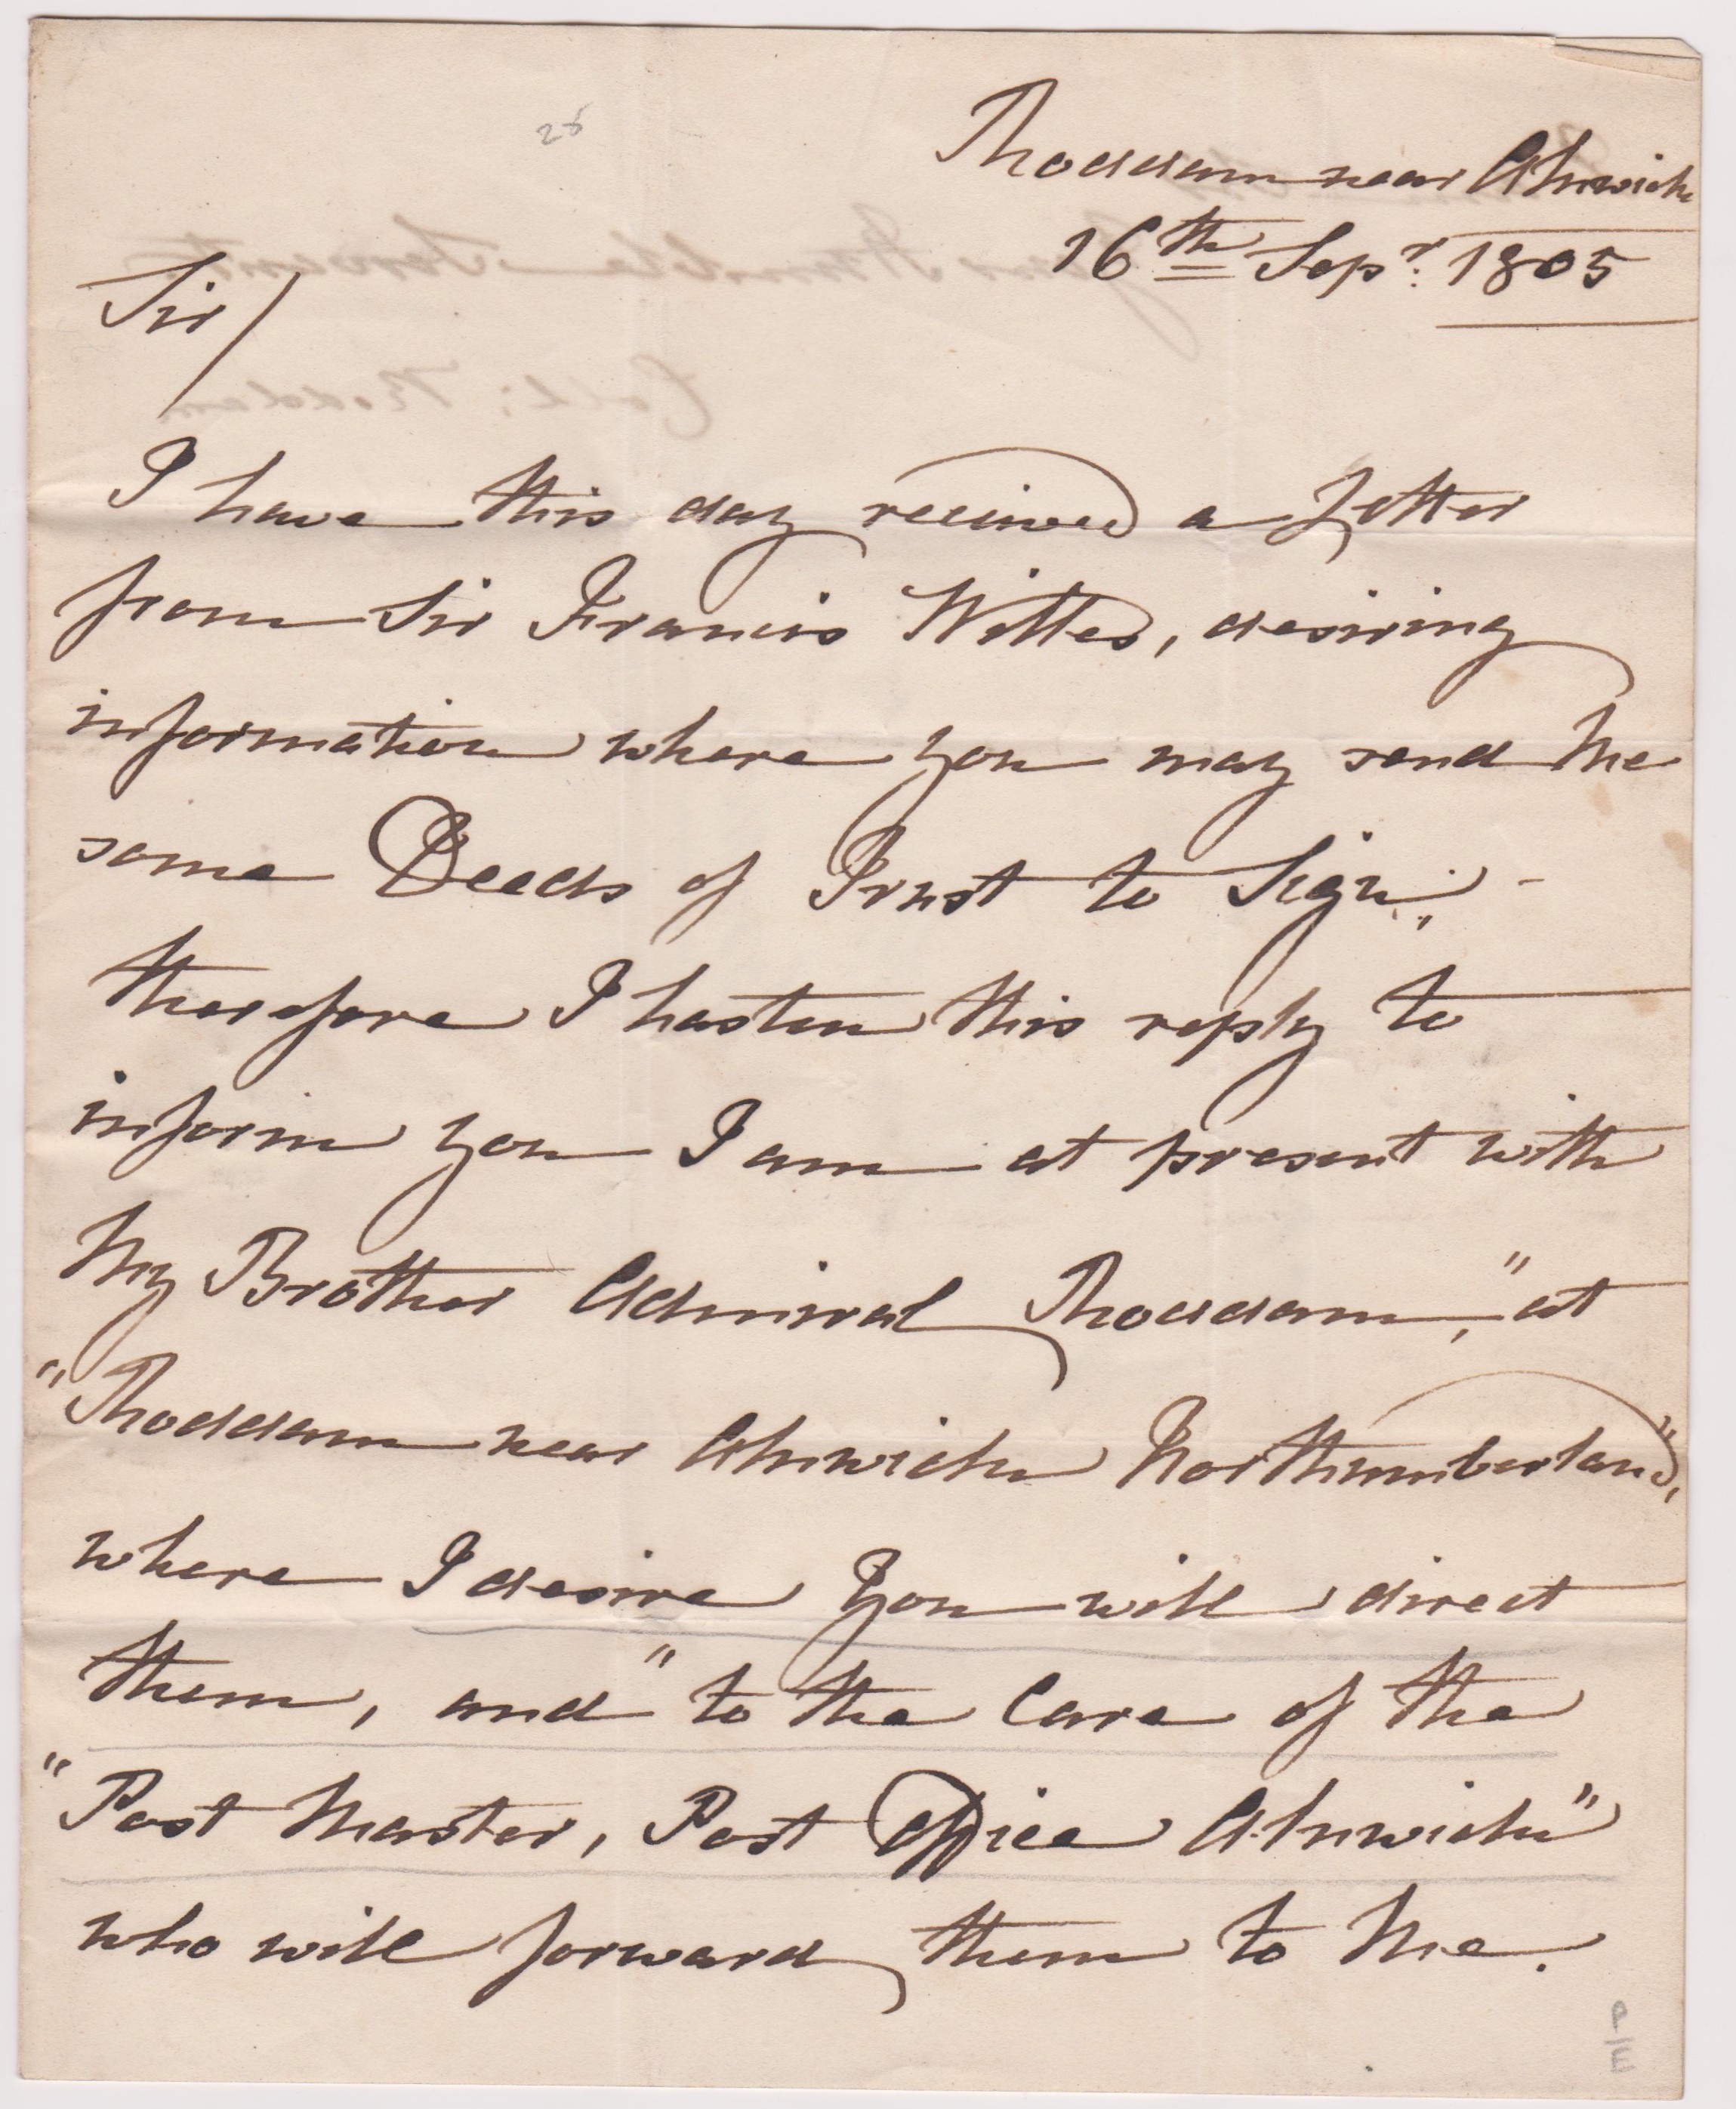 25
Roddam near Alnwick
16th Sepr. 1805
Sir/
I have this day received a Letter
from Sir Francis Willes, desiring
information where you may send Me
some Deeds of Trust to Sign, -
therefore I hasten this reply to
inform you I am at present with
My Brother Admiral Roddam, "at
"Roddam near Alnwick Northumberland",
where I desire You will direct
them, and "to the Care of the
"Post Master, Post Office Alnwick"
who will forward them to Me.